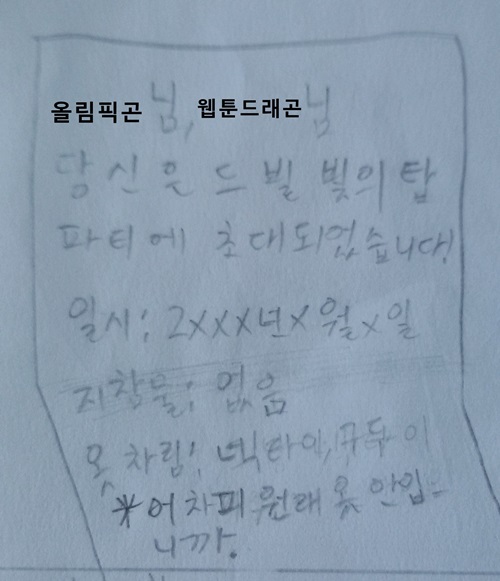 올림픽곤 님, 웹툰드래곤님
당신은 드빌 빛의 탑
파티에 초대되었습니다!
일시: 2xxx년x월x일
지참물: 없음
옷차림: 넥타이, 구두 이
*어차피 원래 옷 안입
니까.